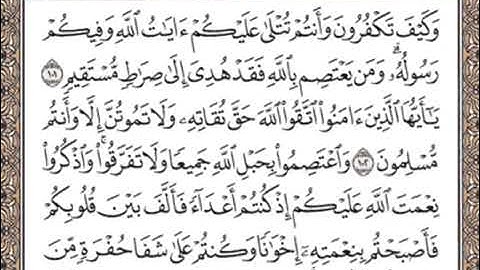 وَكَيْفَ تَكْفُرُونَ وَأَنتُمْ تُتْلَىٰ عَلَيْكُمْ ءَايَٰتُ ٱللَّهِ وَفِيكُمْ
رَسُولُهُۥ ۗ وَمَن يَعْتَصِم بِٱللَّهِ فَقَدْ هُدِىَ إِلَىٰ صِرَٰطٍ مُّسْتَقِيمٍ ١٠١
يَٰٓأَيُّهَا ٱلَّذِينَ ءَامَنُوا۟ ٱتَّقُوا۟ ٱللَّهَ حَقَّ تُقَاتِهِۦ وَلَا تَمُوتُنَّ إِلَّا وَأَنتُم
مُّسْلِمُونَ ١٠٢ وَٱعْتَصِمُوا۟ بِحَبْلِ ٱللَّهِ جَمِيعًا وَلَا تَفَرَّقُوا۟ ۚ وَٱذْكُرُوا۟
نِعْمَتَ ٱللَّهِ عَلَيْكُمْ إِذْ كُنتُمْ أَعْدَآءً فَأَلَّفَ بَيْنَ قُلُوبِكُمْ
فَأَصْبَحْتُم بِنِعْمَتِهِۦٓ إِخْوَٰنًا وَكُنتُمْ عَلَىٰ شَفَا حُفْرَةٍ مِّنَ